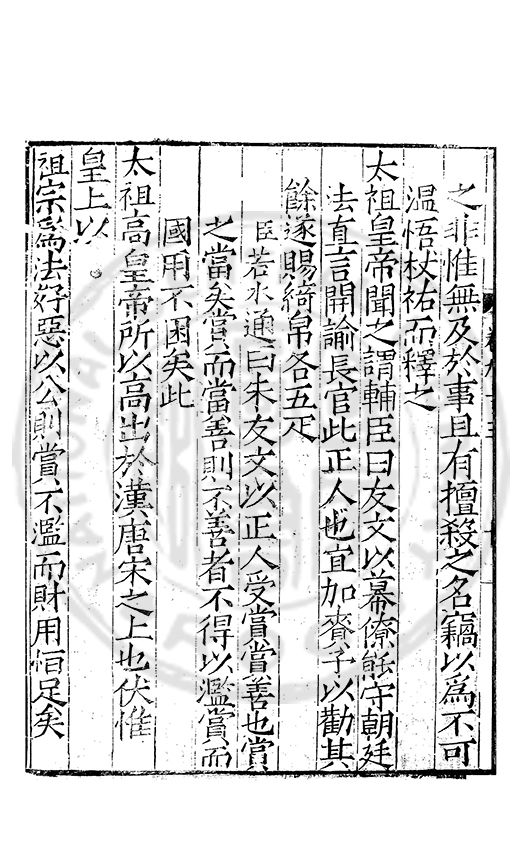 之非惟無及於事且有擅殺之名竊以為不可
温悟杖祐而釋之
太祖皇帝聞之謂輔臣曰友文以幕僚能守朝廷
法直言開諭長官此正人也宜加賚予以勸其
餘遂賜綺帛各五疋
臣若水通曰朱友文以正人受賞賞善也賞
之當矣賞而當善則不善者不得以濫賞而
國用不困矣此
太祖高皇帝所以高出於漢唐宋之上也伏惟
皇上以
祖宗為法好惡以公則賞不濫而財用恒足矣